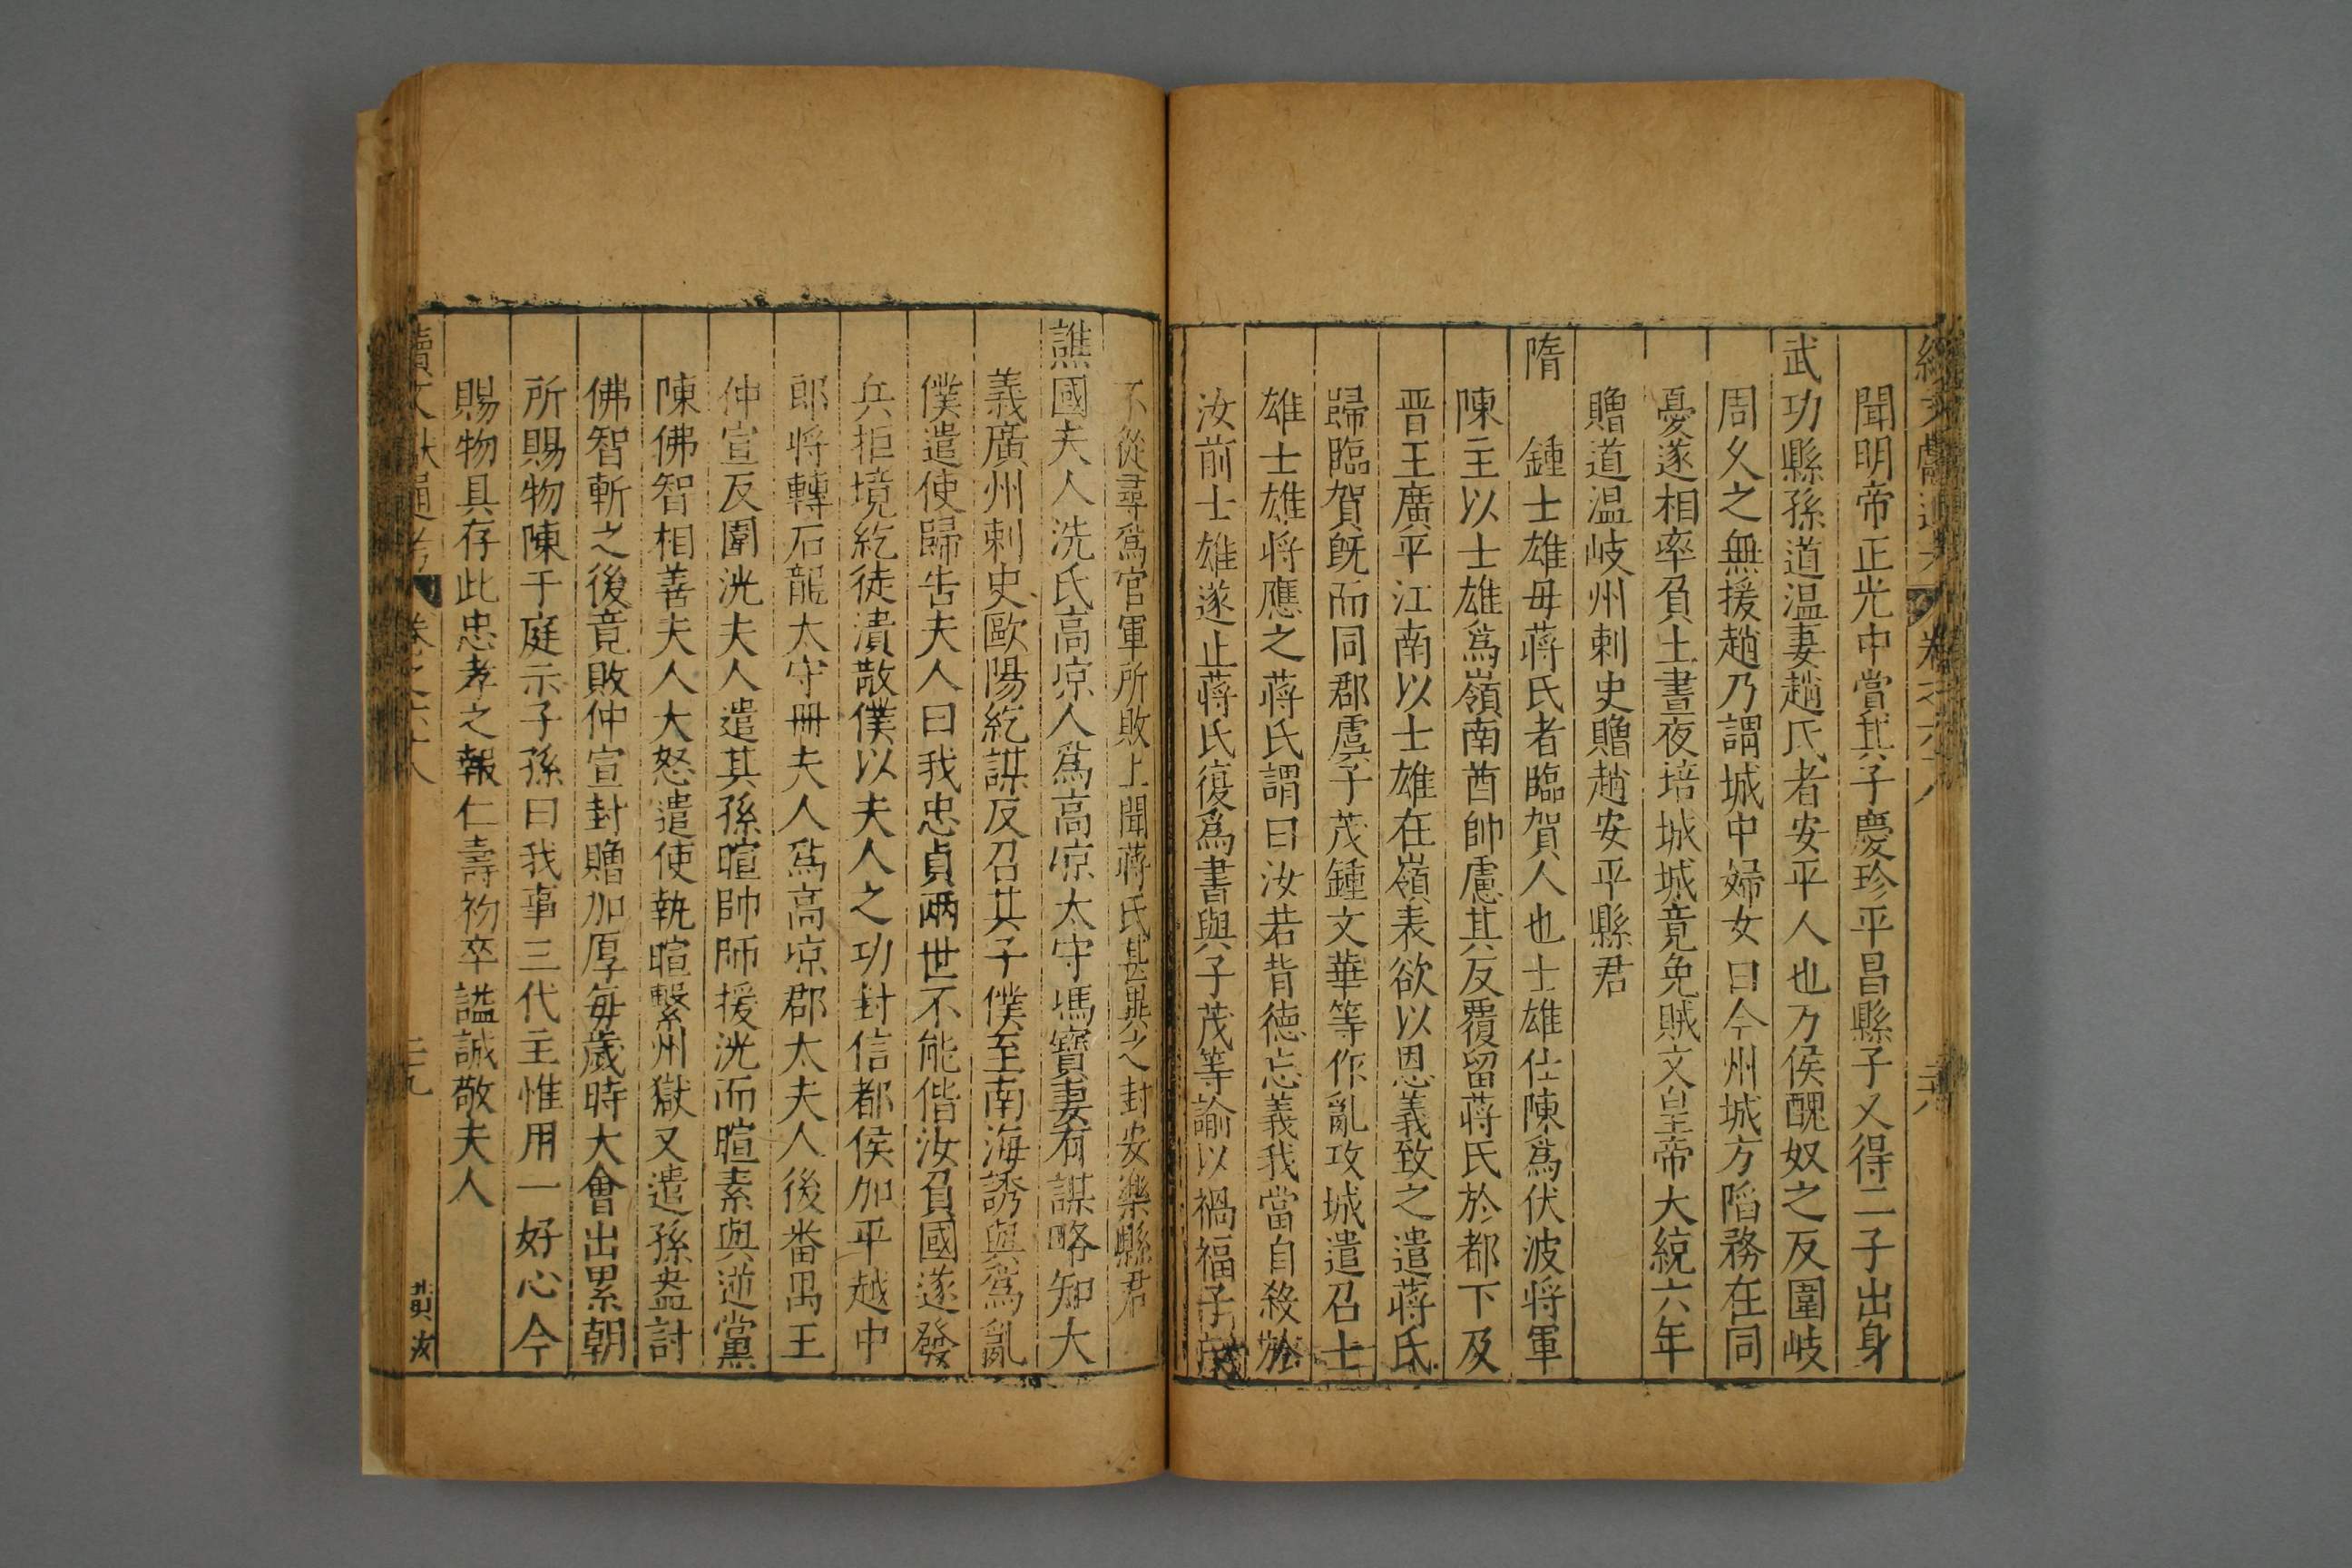 聞明帝正光中賞其子慶珍平昌縣子又得二子出身
武功縣孫道温妻趙氏者安平人也万侯醜奴之反圍岐
周久之無援趙乃謂城中婦女曰今州城方䧟務在同
憂遂相率負土晝夜培城城竟免賊文皇帝大統六年
贈道温岐州刺史贈趙安平縣君
隋 鍾士雄母蔣氏者臨賀人也士雄仕陳爲伏波將軍
陳主以士雄爲嶺南酋帥慮其反覆留蔣氏於都下及
晋王廣平江南以士雄在嶺表欲以恩義致之遣蔣氏
歸臨賀旣而同郡虞子茂鍾文華等作亂攻城遣召士
雄士雄將應之蔣氏謂曰汝若背德忘義我當自殺於
汝前士雄遂止蔣氏復爲書與子茂等諭以禍福子茂
不從尋爲官軍所敗上聞蔣氏甚異之封安樂縣君
譙國夫人洗氏高凉人爲高凉太守馮寶妻有謀略知大
義廣州刺史歐陽紇謀反召其子僕至南海誘與爲亂
僕遣使歸告夫人曰我忠貞兩世不能偕汝負國遂發
兵拒境紇徒潰散僕以夫人之功封信都侯加平越中
郎將轉石龍太守冊夫人爲高凉郡太夫人後番禺王
仲宣反圍洸夫人遣其孫暄帥師援洸而暄素與逆黨
陳佛智相善夫人大怒遣使執暄繫州獄又遣孫盎討
佛智斬之後竟敗仲宣封贈加厚每歲時大會出累朝
所賜物陳于庭示子孫曰我事三代主惟用一好心今
賜物具存此忠孝之報仁壽初卒謚誠敬夫人
續文獻通考 卷之六十八 二十九